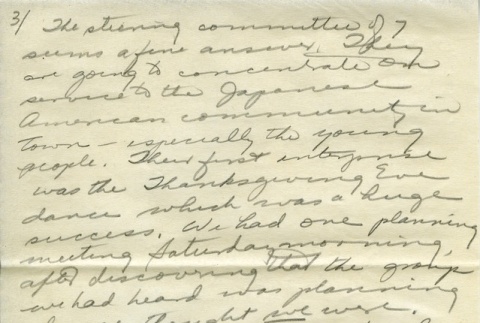 3/ The steering committee of 7
seems a fine answer. They
are going to concentrate on
service to the Japanese
American community in
town – especially the young
people. Their first enterprise
was the Thanksgiving Eve
dance which was a huge
success. We had one planning
meeting Saturday morning,
after discovering that the group
we had heard was planning
thought we were.